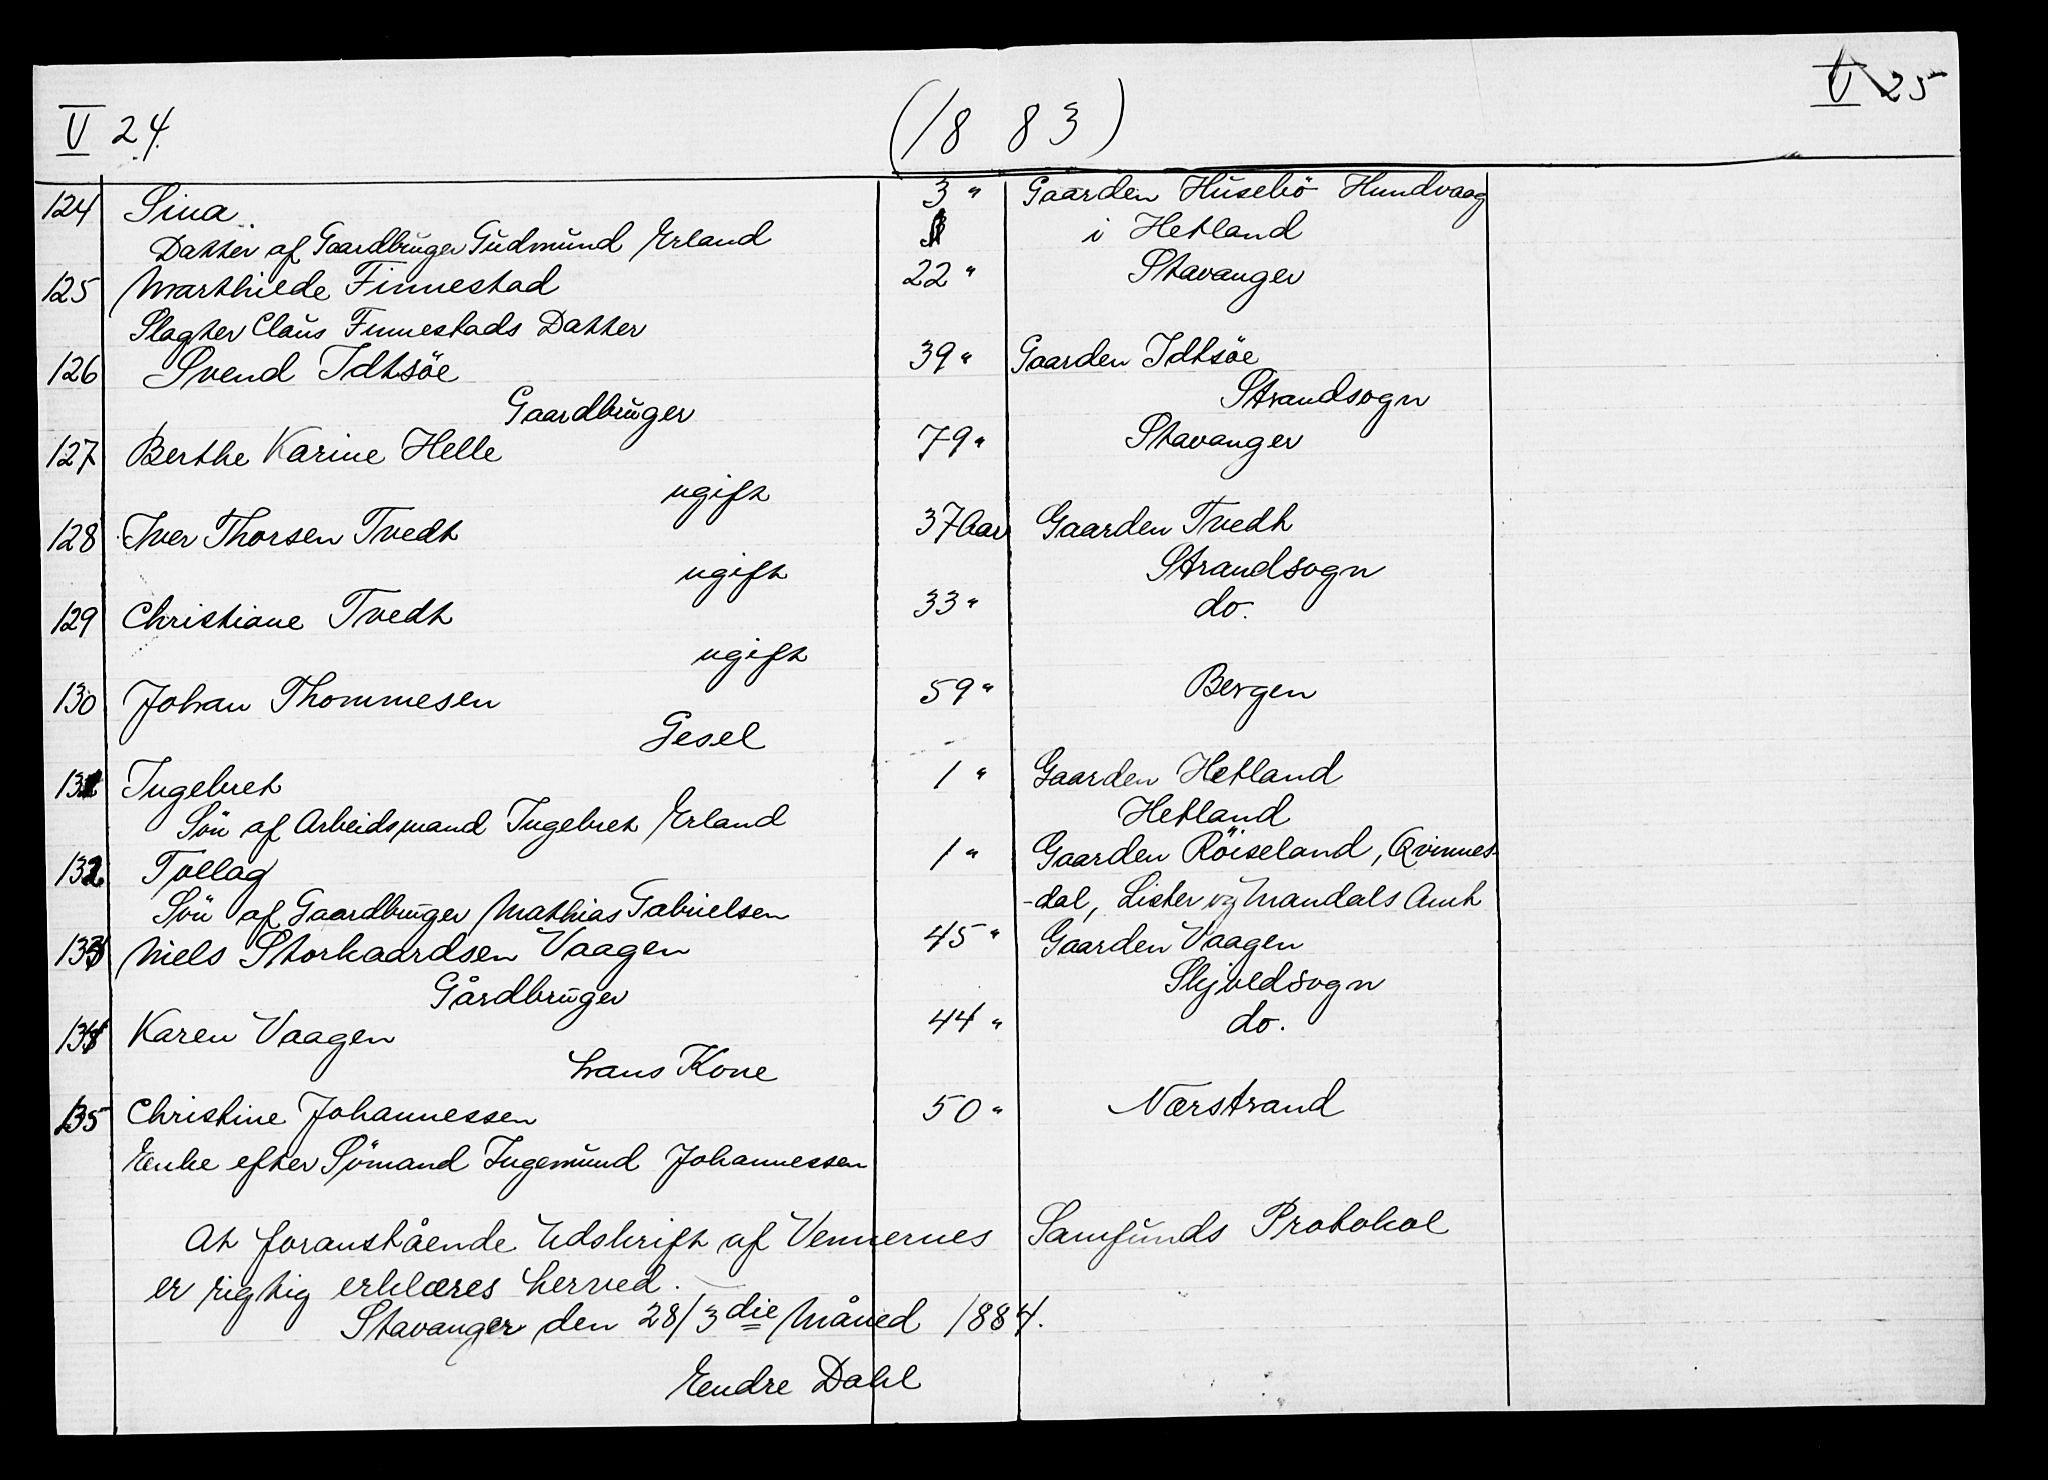 V 24. (1883) V 25
124 Sina 3 " Gaarden Husebö Hundvaag
Datter af Gaardbruger Gudmund Erland i Hetland
125 Marthilde Finnestad 22 " Stavanger
Slagter Claus Finnestads Datter
126 Svend Idtsöe 39 " Gaarden Idtsöe
Gaardbruger Strandsogn
127 Berthe Karine Helle 79 " Stavanger
ugift
128 Iver Thorsen Tvedt 37 Aar Gaarden Tvedt
ugift Strandsogn
129 Christiane Tvedt 33 " do.
ugift
130 Johan Thommesen 59 " Bergen
Gesel
131 Ingebret 1 " Gaarden Hetland
Sön af Arbeidsmand Ingebret Erland Hetland
132 Tollag 1 " Gaarden Röiseland, Qvinnes-
Sön af Gaardbruger Mathias Gabrielsen -dal, Lister og Mandals Amt
133 Niels Storkaardsen Vaagen 45 " Gaarden Vaagen
Gårdbruger Skjoldsogn
134 Karen Vaagen 44 " do.
hans Kone
135 Christine Johannessen 50 " Nærstrand
Enke efter Sömand Ingemund Johannessen
At foranstående Udskrift af Vennernes Samfunds Protokol
er rigtig erklæres herved.
Stavanger den 28/3die Måned 1884.
Endre Dahl